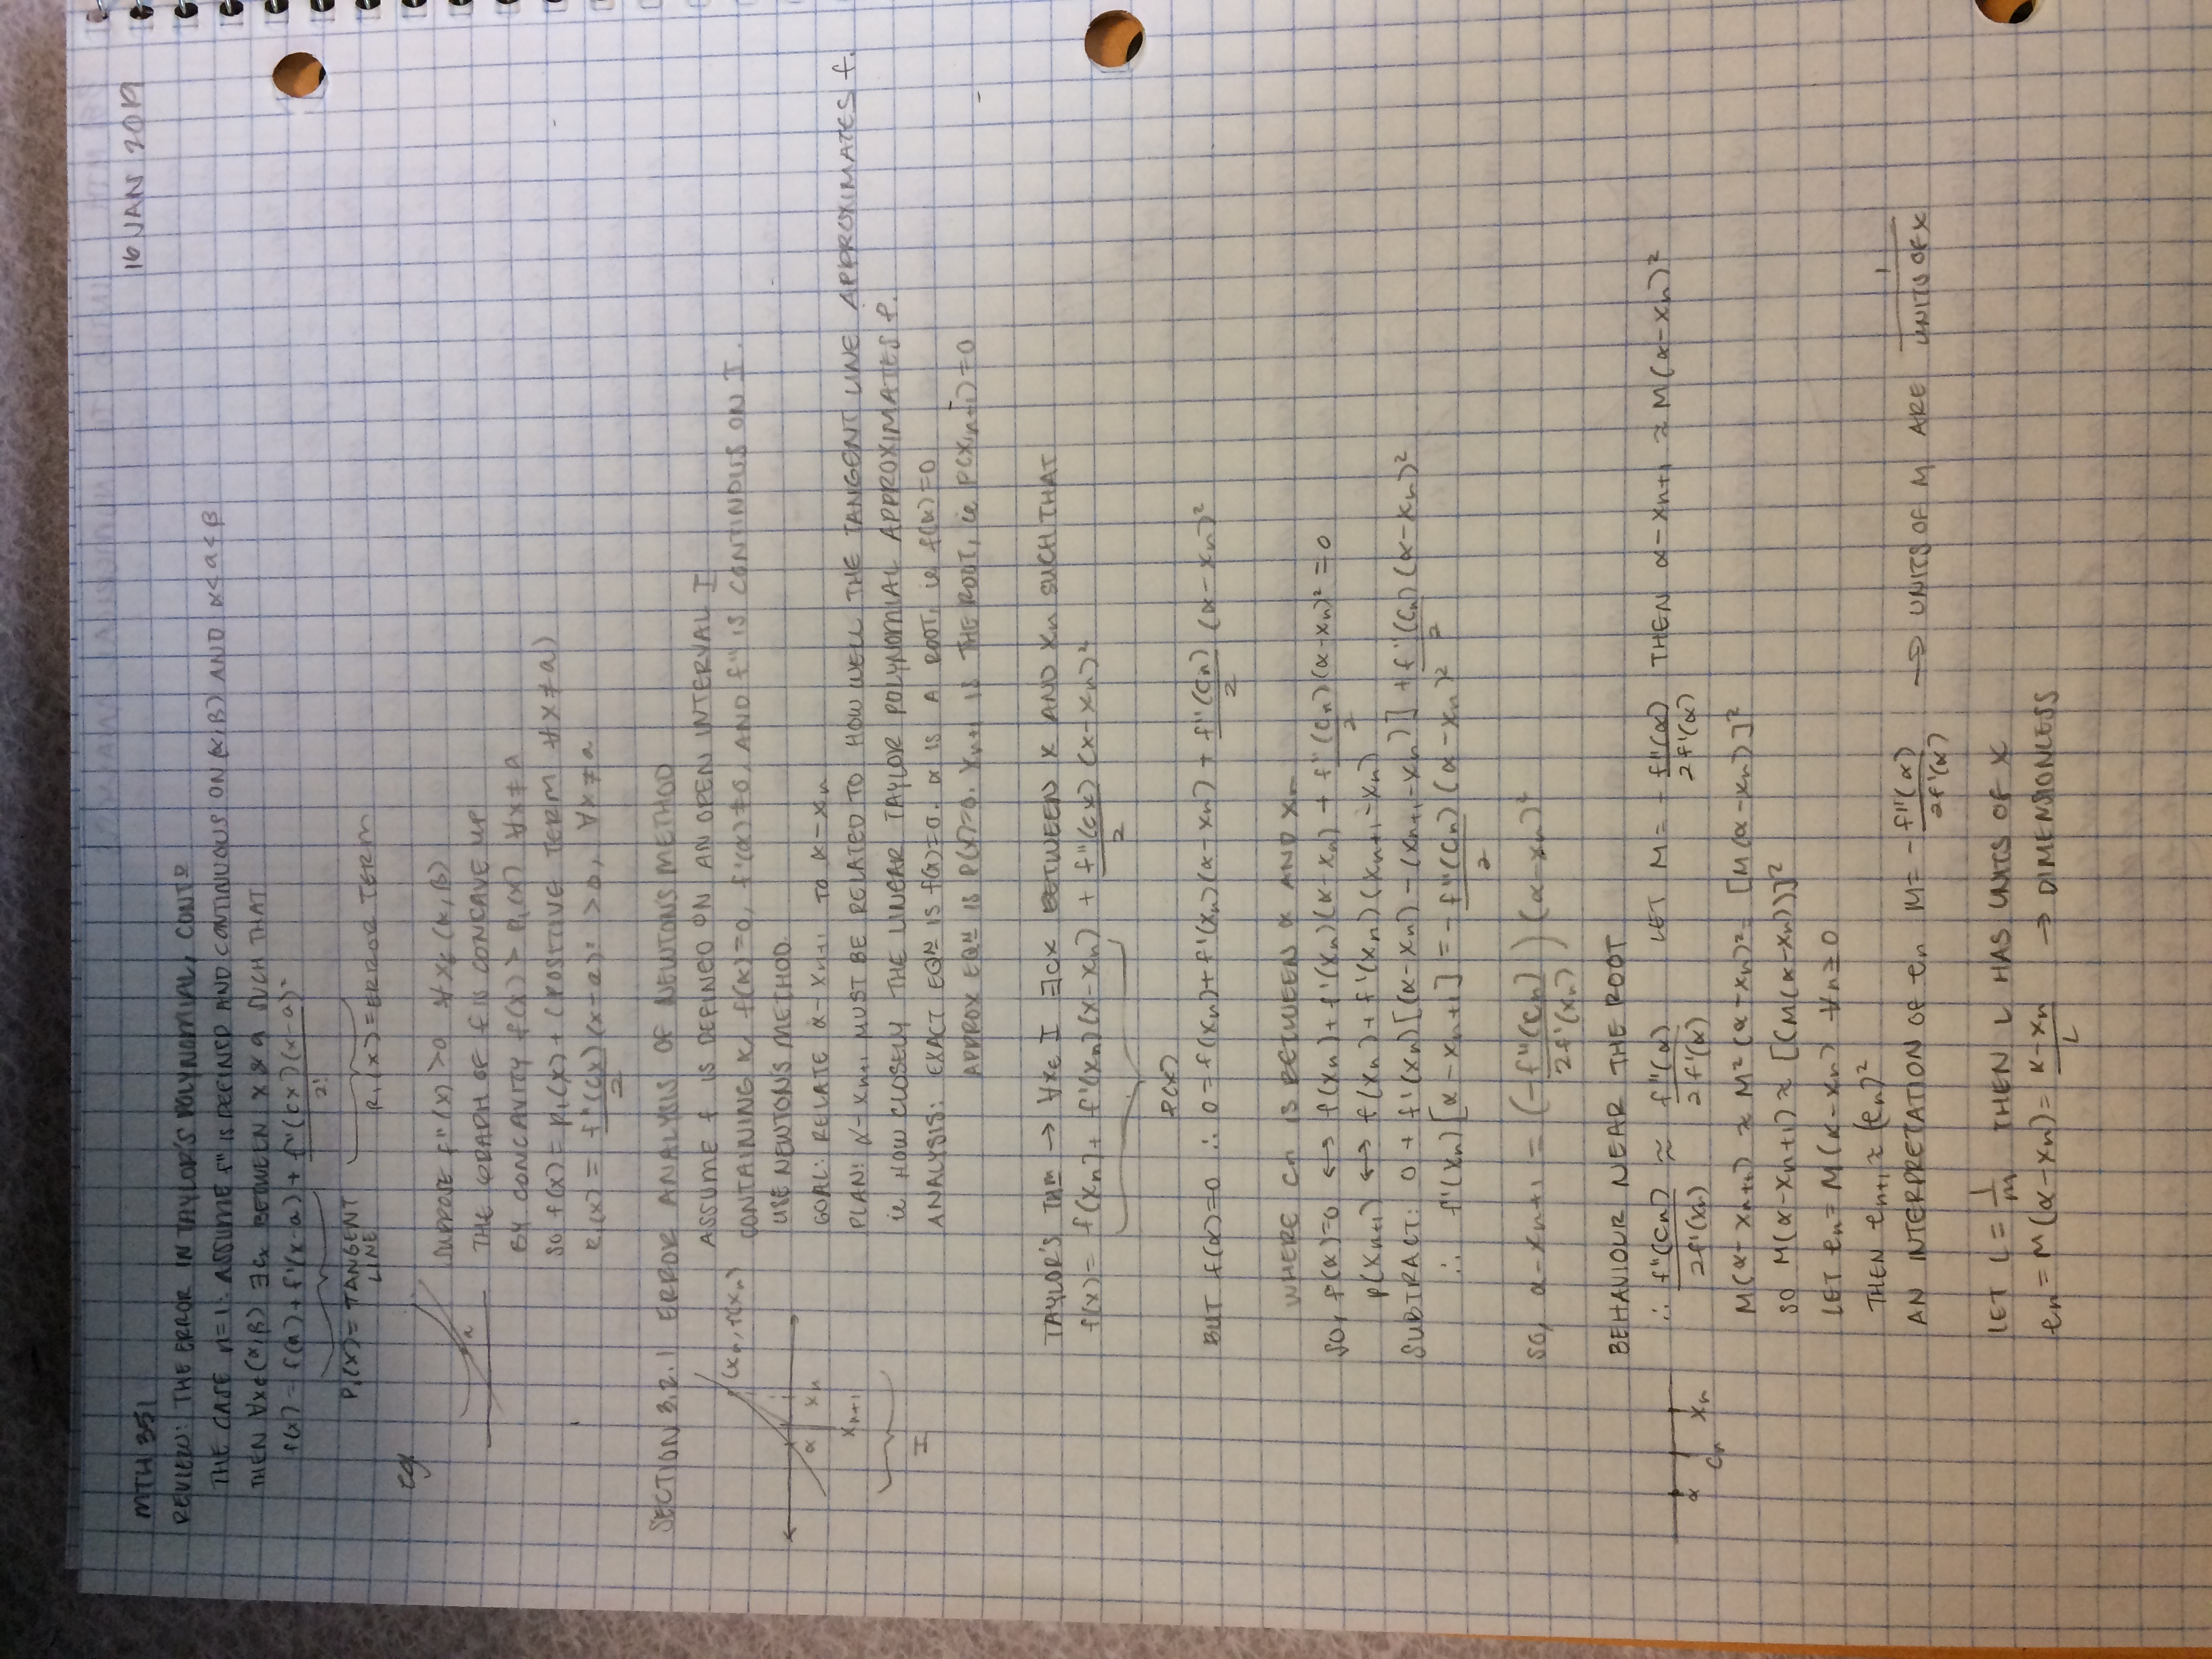 MTH 351
16 JAN 2019
REVIEW: THE ERROR IN TAYLOR'S POLYNOMIAL, CONTD
THE CASE n=1: ASSUME f" IS DEFINED AND CONTINUOUS ON (α,β) AND α<a<β
THEN ∀x∈(α,β) ∃cx BETWEEN x & a SUCH THAT
f(x) = f(a) + f'(x-a) + f"(cx)(x-a)²/2!
P₁(x) = TANGENT LINE
R₁(x) = ERROR TERM
eg
a
SUPPOSE f"(x) >0 ∀x∈(α,β)
THE GRAPH OF f IS CONCAVE UP
BY CONCAVITY f(x) > P₁(x) ∀x≠a
SO f(x) = P₁(x) + (POSITIVE TERM ∀x≠a)
R₁(x) = f"(cx)/2 (x-a)² >0, ∀x≠a
SECTION 3.2.1 ERROR ANALYSIS OF NEWTON'S METHOD
ASSUME f IS DEFINED ON AN OPEN INTERVAL I
(xn, f(xn))
CONTAINING α, f(α)=0, f'(α)≠0, AND f" IS CONTINOUS ON I.
USE NEWTON'S METHOD.
α xn
xn+1
I
GOAL: RELATE α-xn+1 TO α-xn
PLAN: α-xn+1 MUST BE RELATED TO HOW WELL THE TANGENT LINE APPROXIMATES f.
ie HOW CLOSELY THE LINEAR TAYLOR POLYNOMIAL APPROXIMATES f.
ANALYSIS: EXACT EQN IS f(x)=0. α IS A ROOT, ie f(α)=0
APPROX EQN IS P(x)=0. xn+1 IS THE ROOT, ie P(xn+1)=0
TAYLOR'S THM → ∀x∈ I ∃cx BETWEEN x AND xn SUCH THAT
f(x) = f(xn) + f'(xn)(x-xn) + f"(cx)/2 (x-xn)²
P(x)
BUT f(α)=0 ∴ 0 = f(xn)+f'(xn)(α-xn) + f"(cn)/2 (α-xn)²
WHERE cn IS BETWEEN α AND xn
SO, f(α)=0 ↔ f(xn)+f'(xn)(α-xn) + f"(cn)/2 (α-xn)² = 0
P(xn+1) ↔ f(xn)+f'(xn)(xn+1-xn)
SUBTRACT: 0 + f'(xn)[(α-xn) - (xn+1-xn)] + f"(cn)/2 (α-xn)²
∴ f'(xn)[α-xn+1] = -f"(cn)/2 (α-xn)²
SO, α-xn+1 = (-f"(cn)/2f'(xn)) (α-xn)²
BEHAVIOUR NEAR THE ROOT
α cn xn
∴ f"(cn)/2f'(xn) ≈ f"(α)/2f'(α) LET M = -f"(α)/2f'(α) THEN α-xn+1 ≈ M(α-xn)²
M(α-xn+1) ≈ M²(α-xn)² = [M(α-xn)]²
SO M(α-xn+1) ≈ [(M(α-xn))]²
LET en = M(α-xn) ∀n≥0
THEN en+1 ≈ (en)²
AN INTERPRETATION OF en M = -f"(α)/2f'(α) → UNITS OF M ARE 1/UNITS OF x
LET L = 1/m THEN L HAS UNITS OF x
en = M(α-xn) = α-xn/L → DIMENSIONLESS